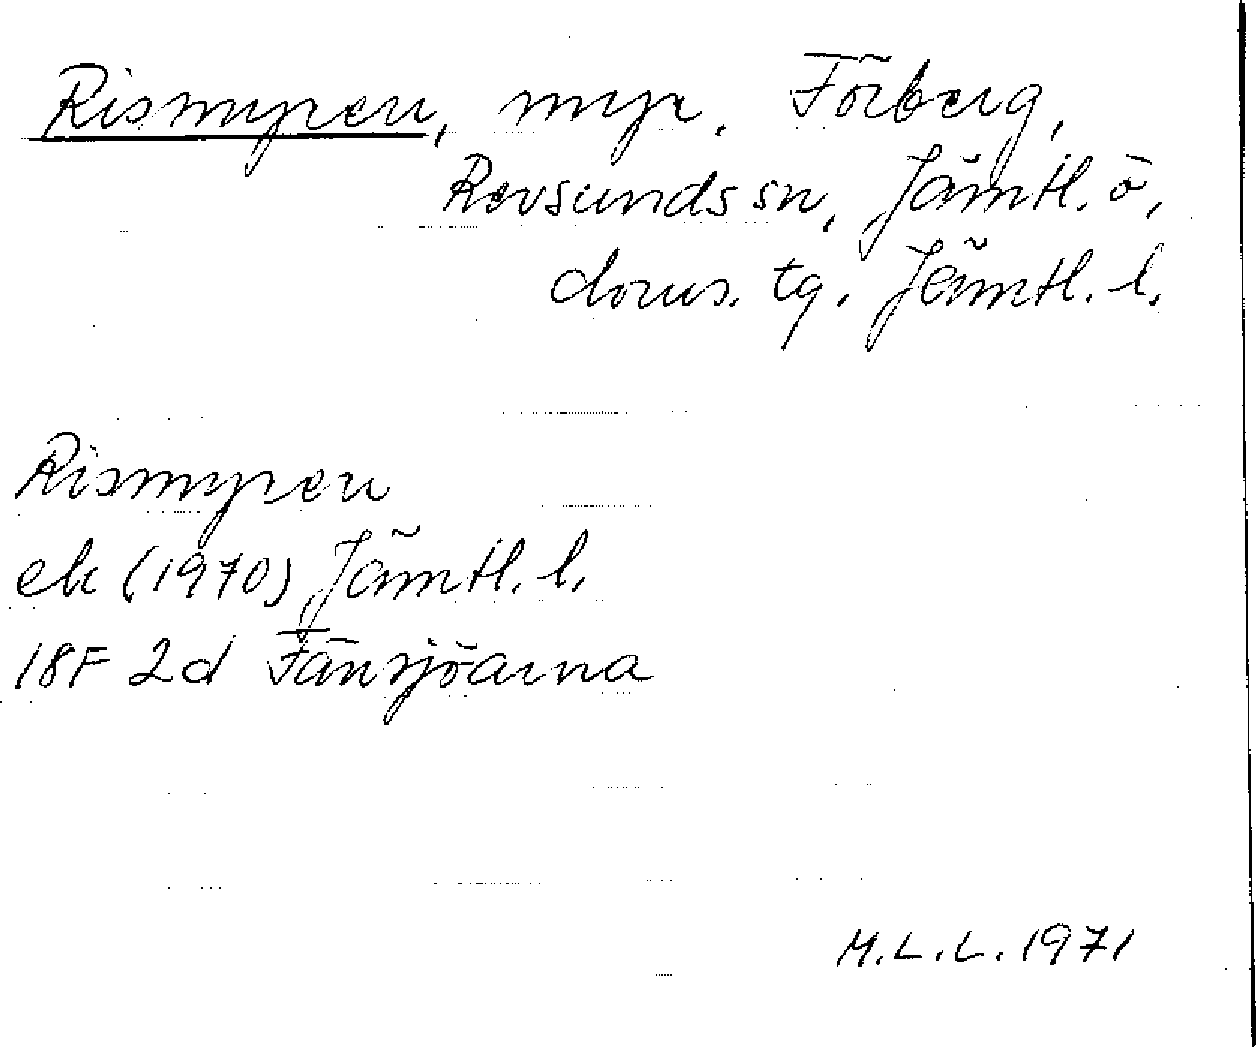 Rismyren, myr. Förberg,
Revsunds sn, Jämtl. ö,
doms. tg. Jämtl. l.
Rismyren
ek (1970) Jämtl. l.
18F 2d Fänsjöarna
M.L.L. 1971